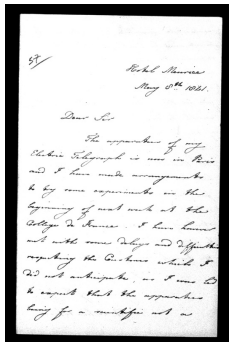 57
Hotel Meurice
May 8th 1841.
Dear Sir
The apparatus of my
Electric Telegraph is now in Paris
and I have made arrangements
to try some experiments in the
beginning of next week at the
College de France. I have however
met with some delays and difficulties
respecting the Customs which I
did not anticipate, as I was led
to expect that the apparatus
being for a scientific not a